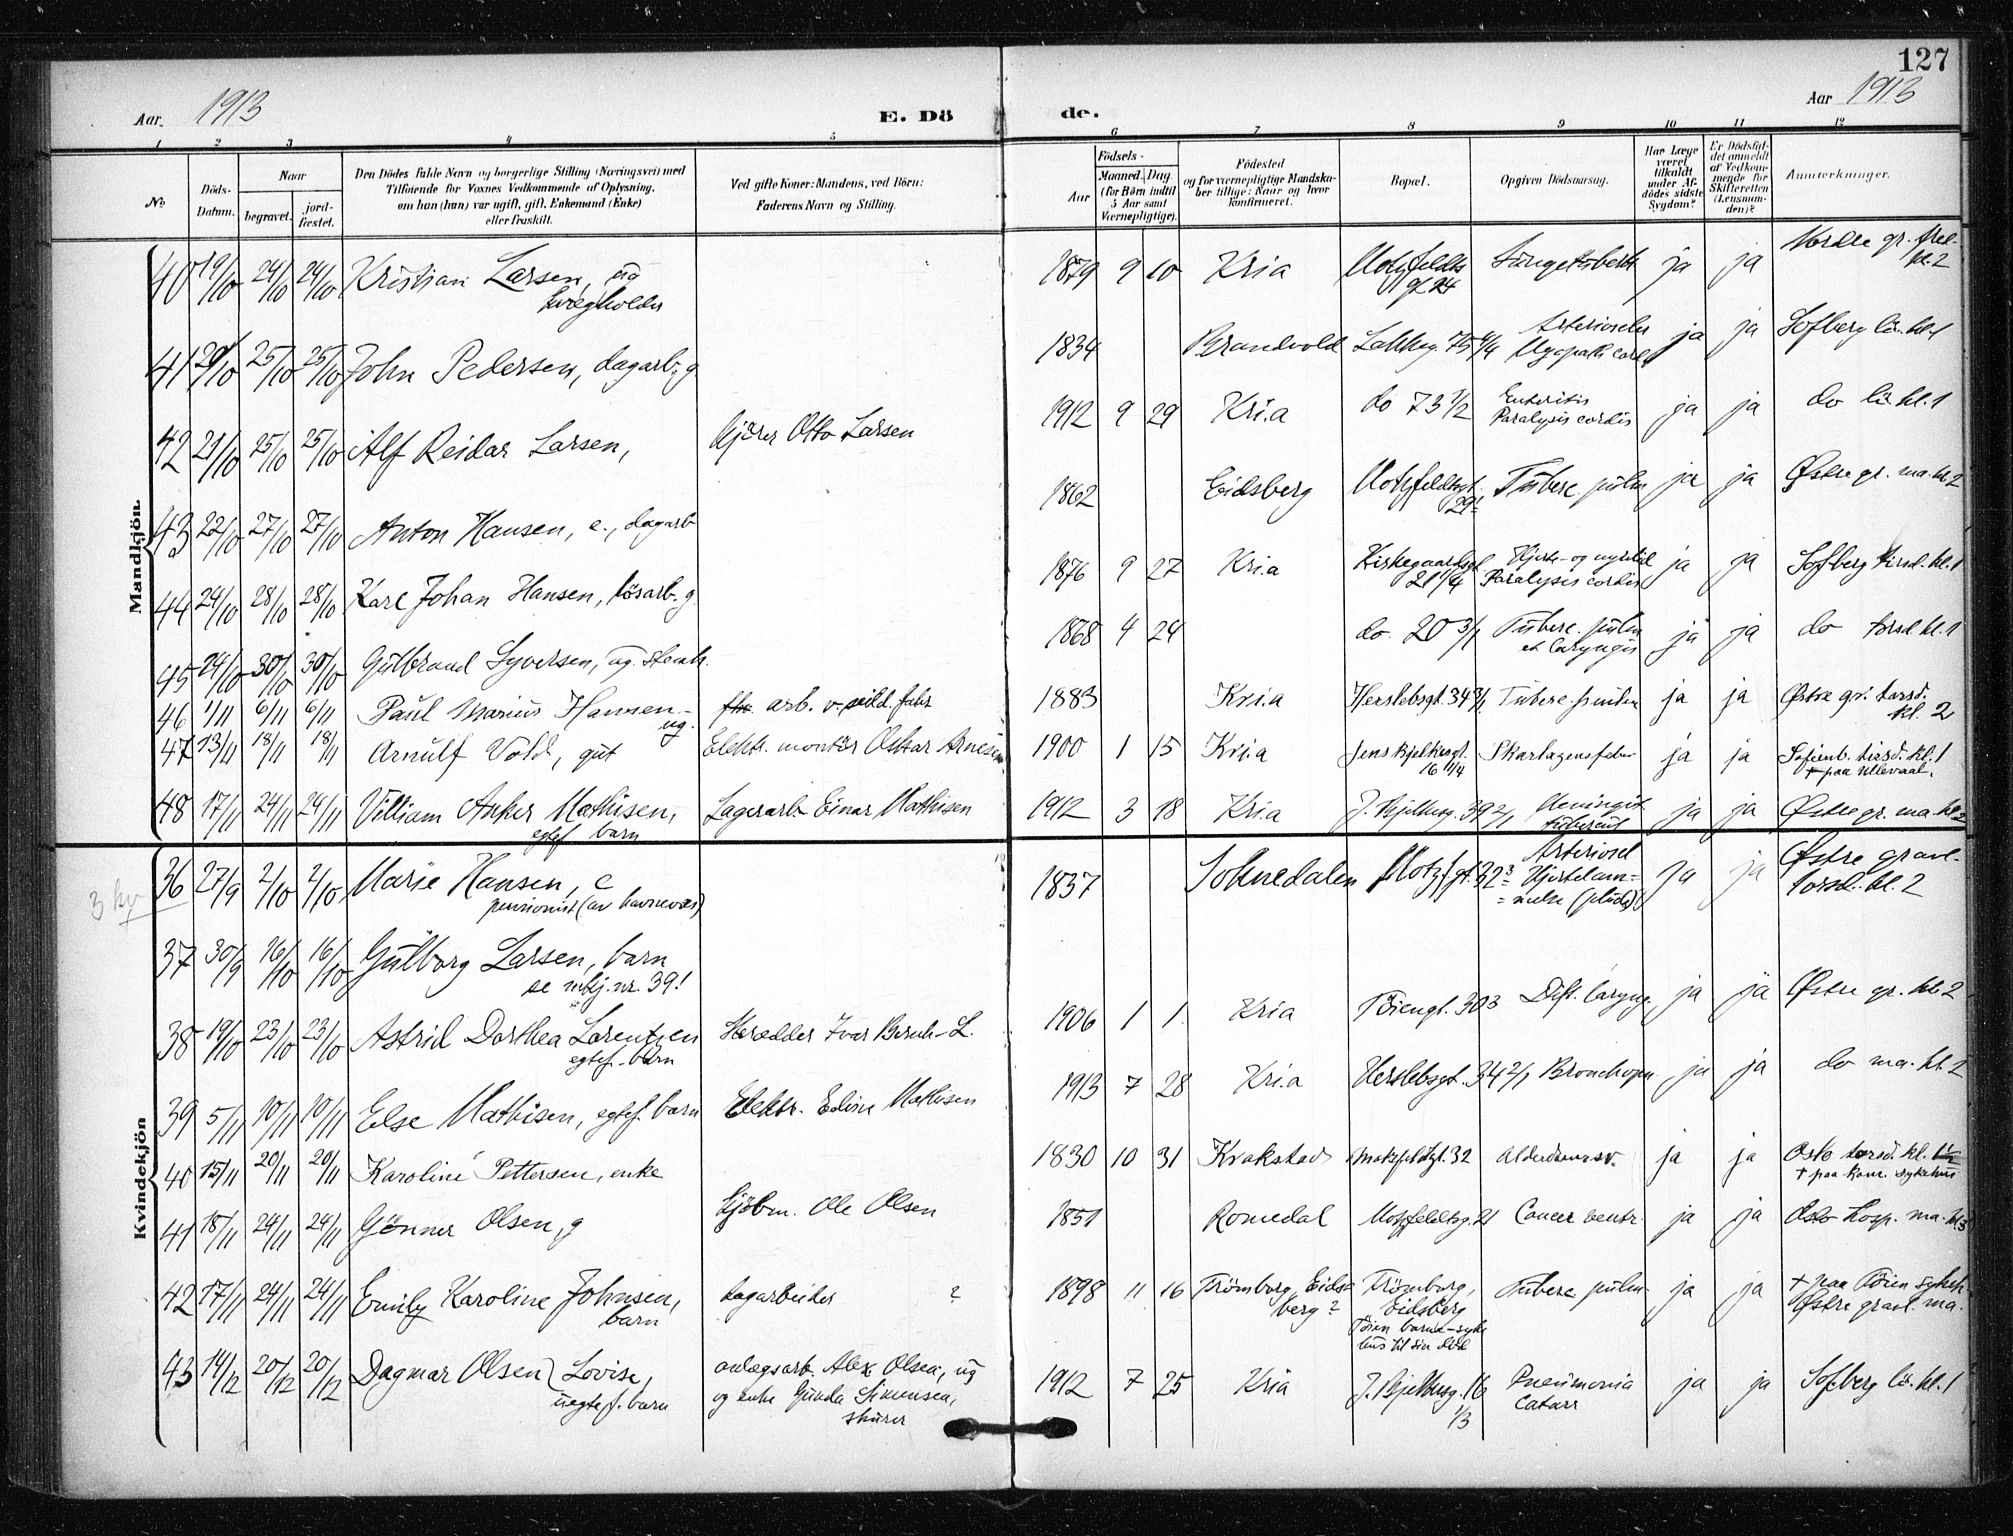 127
Aar 1913
E. Dö
de.
Aar 1913
1 2 3 4 5 6 7 8 9 10 11 12
No
Döds-Datum.
Naar
begravet.
jord-fæstet.
Den Dödes fulde Navn og borgerlige Stilling (Næringsvei) med
Tilföiende för Voxnes Vedkommende af Oplysning,
om han (hun) var ugift, gift, Enkemand (Enke)
eller fraskilt.
Ved gifte Koner: Mandens, ved Börn:
Faderens Navn og Stilling.
Födsels-
Aar
Maaned. Dag.
(for Börn indtil
5 Aar samt
Værnepligtige).
Födested
og for værnepligtige Mandska-
ber tillige: Naar og hvor
konfirmeret.
Bopæl.
Opgiven Dödsaarsag.
Har Læge
været
tilkaldt
under Af-
dödes sidste
Sygdom?
Er Dödsfal-
det anmeldt
af Vedkom-
mende for
Skifteretten
(Lensman-
den)?
Anmærkninger.
Mandkjön.
40 19/10 24/10 24/10 Kristian Larsen, ug 1879 9 10 Kria Motzfeldts gt 24 ja ja Nordre gr.
kl. 2
41 25/10 25/10 John Pedersen, dagarb. g 1834 Brandvold Lakkeg. 75 ja ja Sofberg lö. kl. 1
42 21/10 25/10 25/10 Alf Reidar Larsen, Kjörer Otto Larsen 1912 9 29 Kria do 73 Enteritis
Paralysis cordis ja ja do lö. kl. 1
43 22/10 27/10 27/10 Anton Hansen, e., dagarb 1862 Eidsberg Motzfeldtsgt. Tuberc. pulm ja ja Østre gr. ma. kl 2
44 24/10 28/10 28/10 Karl Johan Hansen, lösarb. g 1876 9 27 Kria Kirkegaardsgt
Paralysis cordis ja ja Sofberg tirsd. kl. 1
45 24/10 30/10 30/10 Gulbrand Syversen, ug. 1868 4 24 do. 20 3/1 Tuberc. pulm
et laryngis ja ja do torsd kl. 1
46 1/11 6/11 6/11 Paul Marius Hansen - ug. arb. v. 1883 Kria Herslebsgt. 34 Tuberc. ja ja Østre gr. torsd.
kl. 2
47 13/11 18/11 18/11 Arnulf Vold, gut Elektr. montör Oskar Arnesen 1900 1 15 Kria Jens Bjelkesgt.
16 Skarlagensfeber ja ja Sofienb. tirsd. kl. 1
+ paa Ullevaal.
48 17/11 24/11 24/11 Villiam Anker Mathisen,
egtef barn Lagerarb. Einar Mathisen 1912 3 18 Kria J. Bjelkesg. 39 2/1 Meningit
tubercul ja ja Østre gr. ma. kl 2
3 kv
Kvindekjön
36 27/9 2/10 2/10 Marie Hansen, e
pensionist (av havnevæs) 1837 Soknedalen Motzf. gt. 32 Arteriosel
Hjertelam-
melse ja ja Østre gravl.
torsd. kl. 2
37 30/9 16/10 16/10 Gulborg Larsen, barn
se mkj. nr. 39!
38 19/10 23/10 23/10 Astrid Dorthea Lorentzen
egtef. barn Skrædder Ivar Bernh- L. 1906 1 1 Kria Töiengt. 30 3 Dift. laryng. ja ja Østre gr. kl 2
39 5/11 10/11 10/11 Else Mathisen, egtef. barn Elektr. Edvin Mathisen 1913 7 28 Kria Herslebsgt. 34 2/1 Bronchopn ja ja do ma. kl. 2
40 15/11 20/11 20/11 Karoline Pettersen, enke 1830 10 31 Krakstad Motzfeldtgt. 32 Alderdomssv. ja ja Oslo torsd. kl. 1
+ paa kom. sykehus
41 18/11 24/11 24/11 Gunner Olsen, g Sjöm. Ole Olsen 1851 Romedal Motzfeldtsg. 21 Cancer ventr. ja ja Oslo hosp. ma. kl 3
42 17/11 24/11 24/11 Emily Karoline Johnsen,
barn dagarbeider ? 1898 11 16 Trömborg, Eids-
berg? Trömborg,
Eidsberg
Töien barne-syke
hus til sin död Tuberc pulm. ja ja + paa Töien sykeh
Østre gravl. ma.
43 14/12 20/12 20/12 Dagmar Olsen) Lovise,
uegtef. barn anlegsarb. Alex Olsen, ug
og enke Gunda Simensen, 1912 7 25 Kria J. Bjelkesg. 16
1/3 Pneumonia
Catarr ja ja Sofberg lö. kl. 1